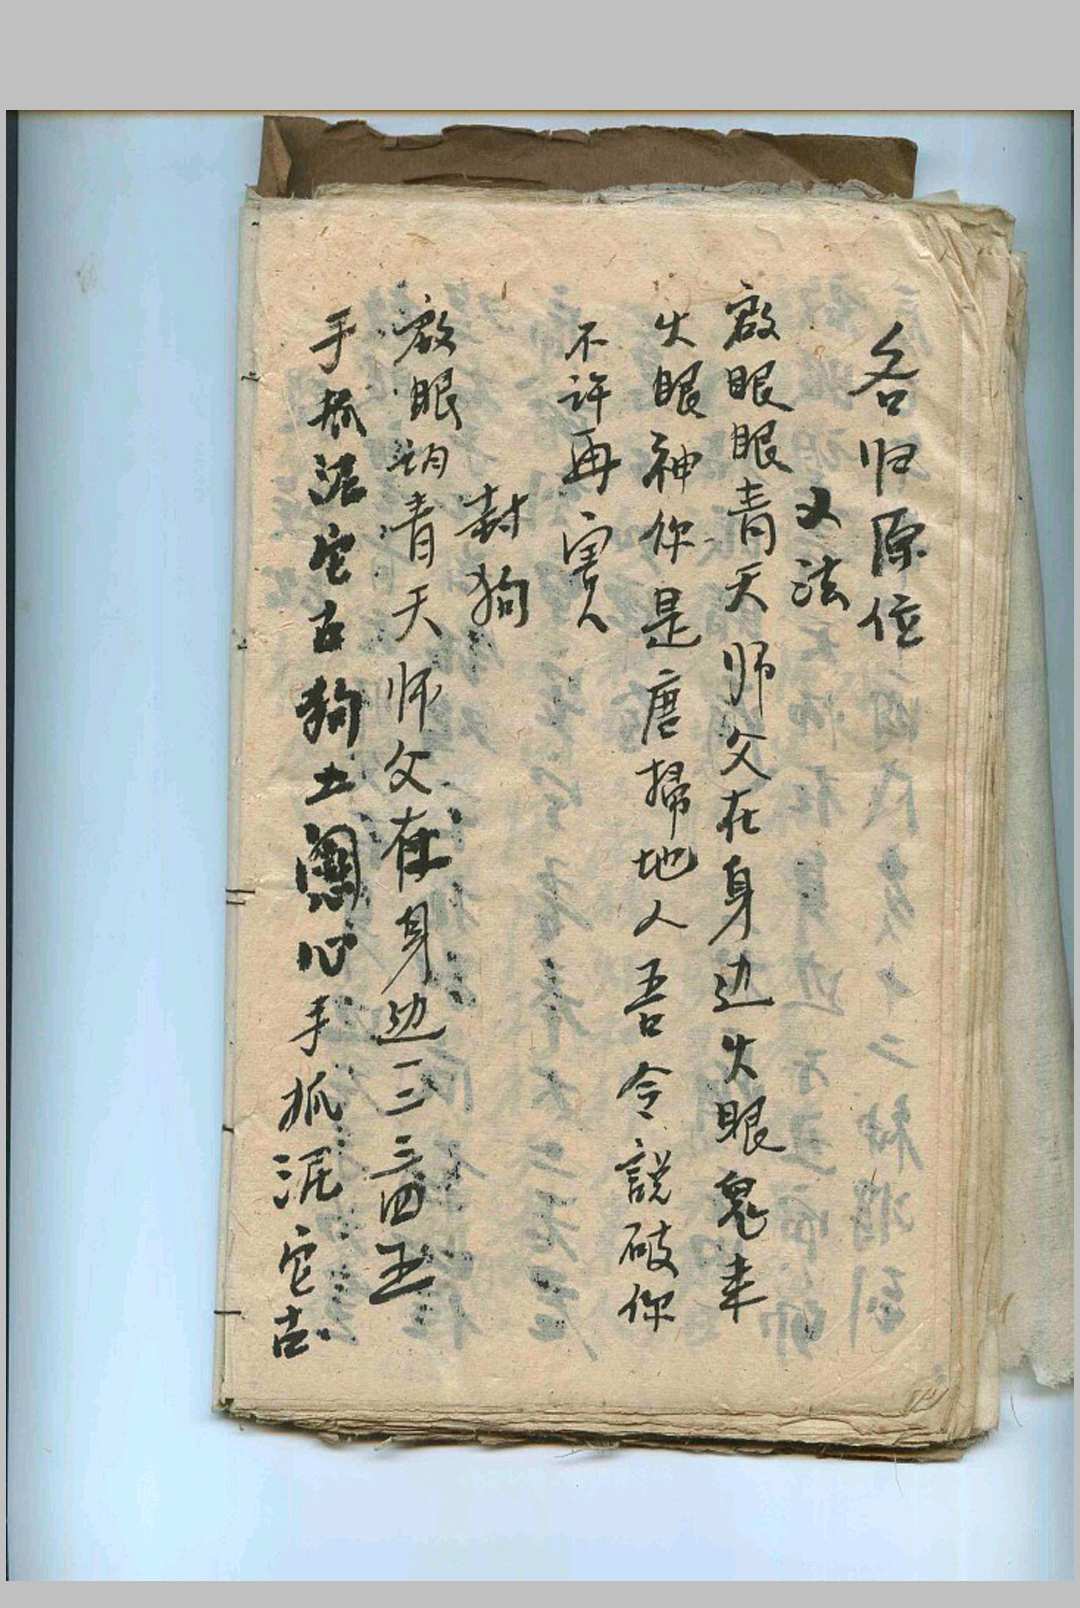 各归原位
又法
啟眼眼青天师父在身边火眼鬼来
火眼神你是唐掃地人吾令説破你
不许再害人
封狗
啟眼明青天师父在身边一二三四五
手抓泥它古狗土心手抓泥它古